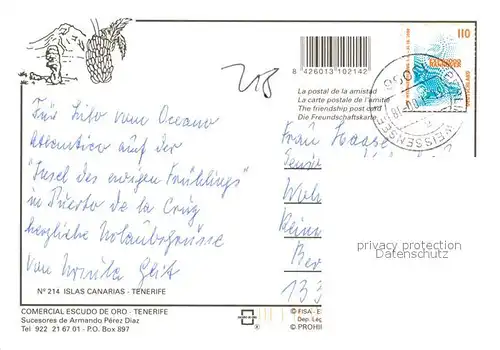 110
DEUTSCHLAND
WEISSENSEE
8 426013 102142
La postal de la amistad
La carte postale de l'amitié
The friendship post card
Die Freundschaftskarte
Für Lilo vom Oceano
Atlantico auf der
"Insel des ewigen Frühlings"
in Puerto de la Cruz
herzliche Urlaubsgrüsse
von Ursula
Frau Haase
privacy protection
Datenschutz
133
Nº 214 ISLAS CANARIAS - TENERIFE
COMERCIAL ESCUDO DE ORO - TENERIFE
Sucesores de Armando Pérez Diaz
Tel 922 21 67 01 - P.O. Box 897
© FISA - E
Dep. Leg
© PROHIB